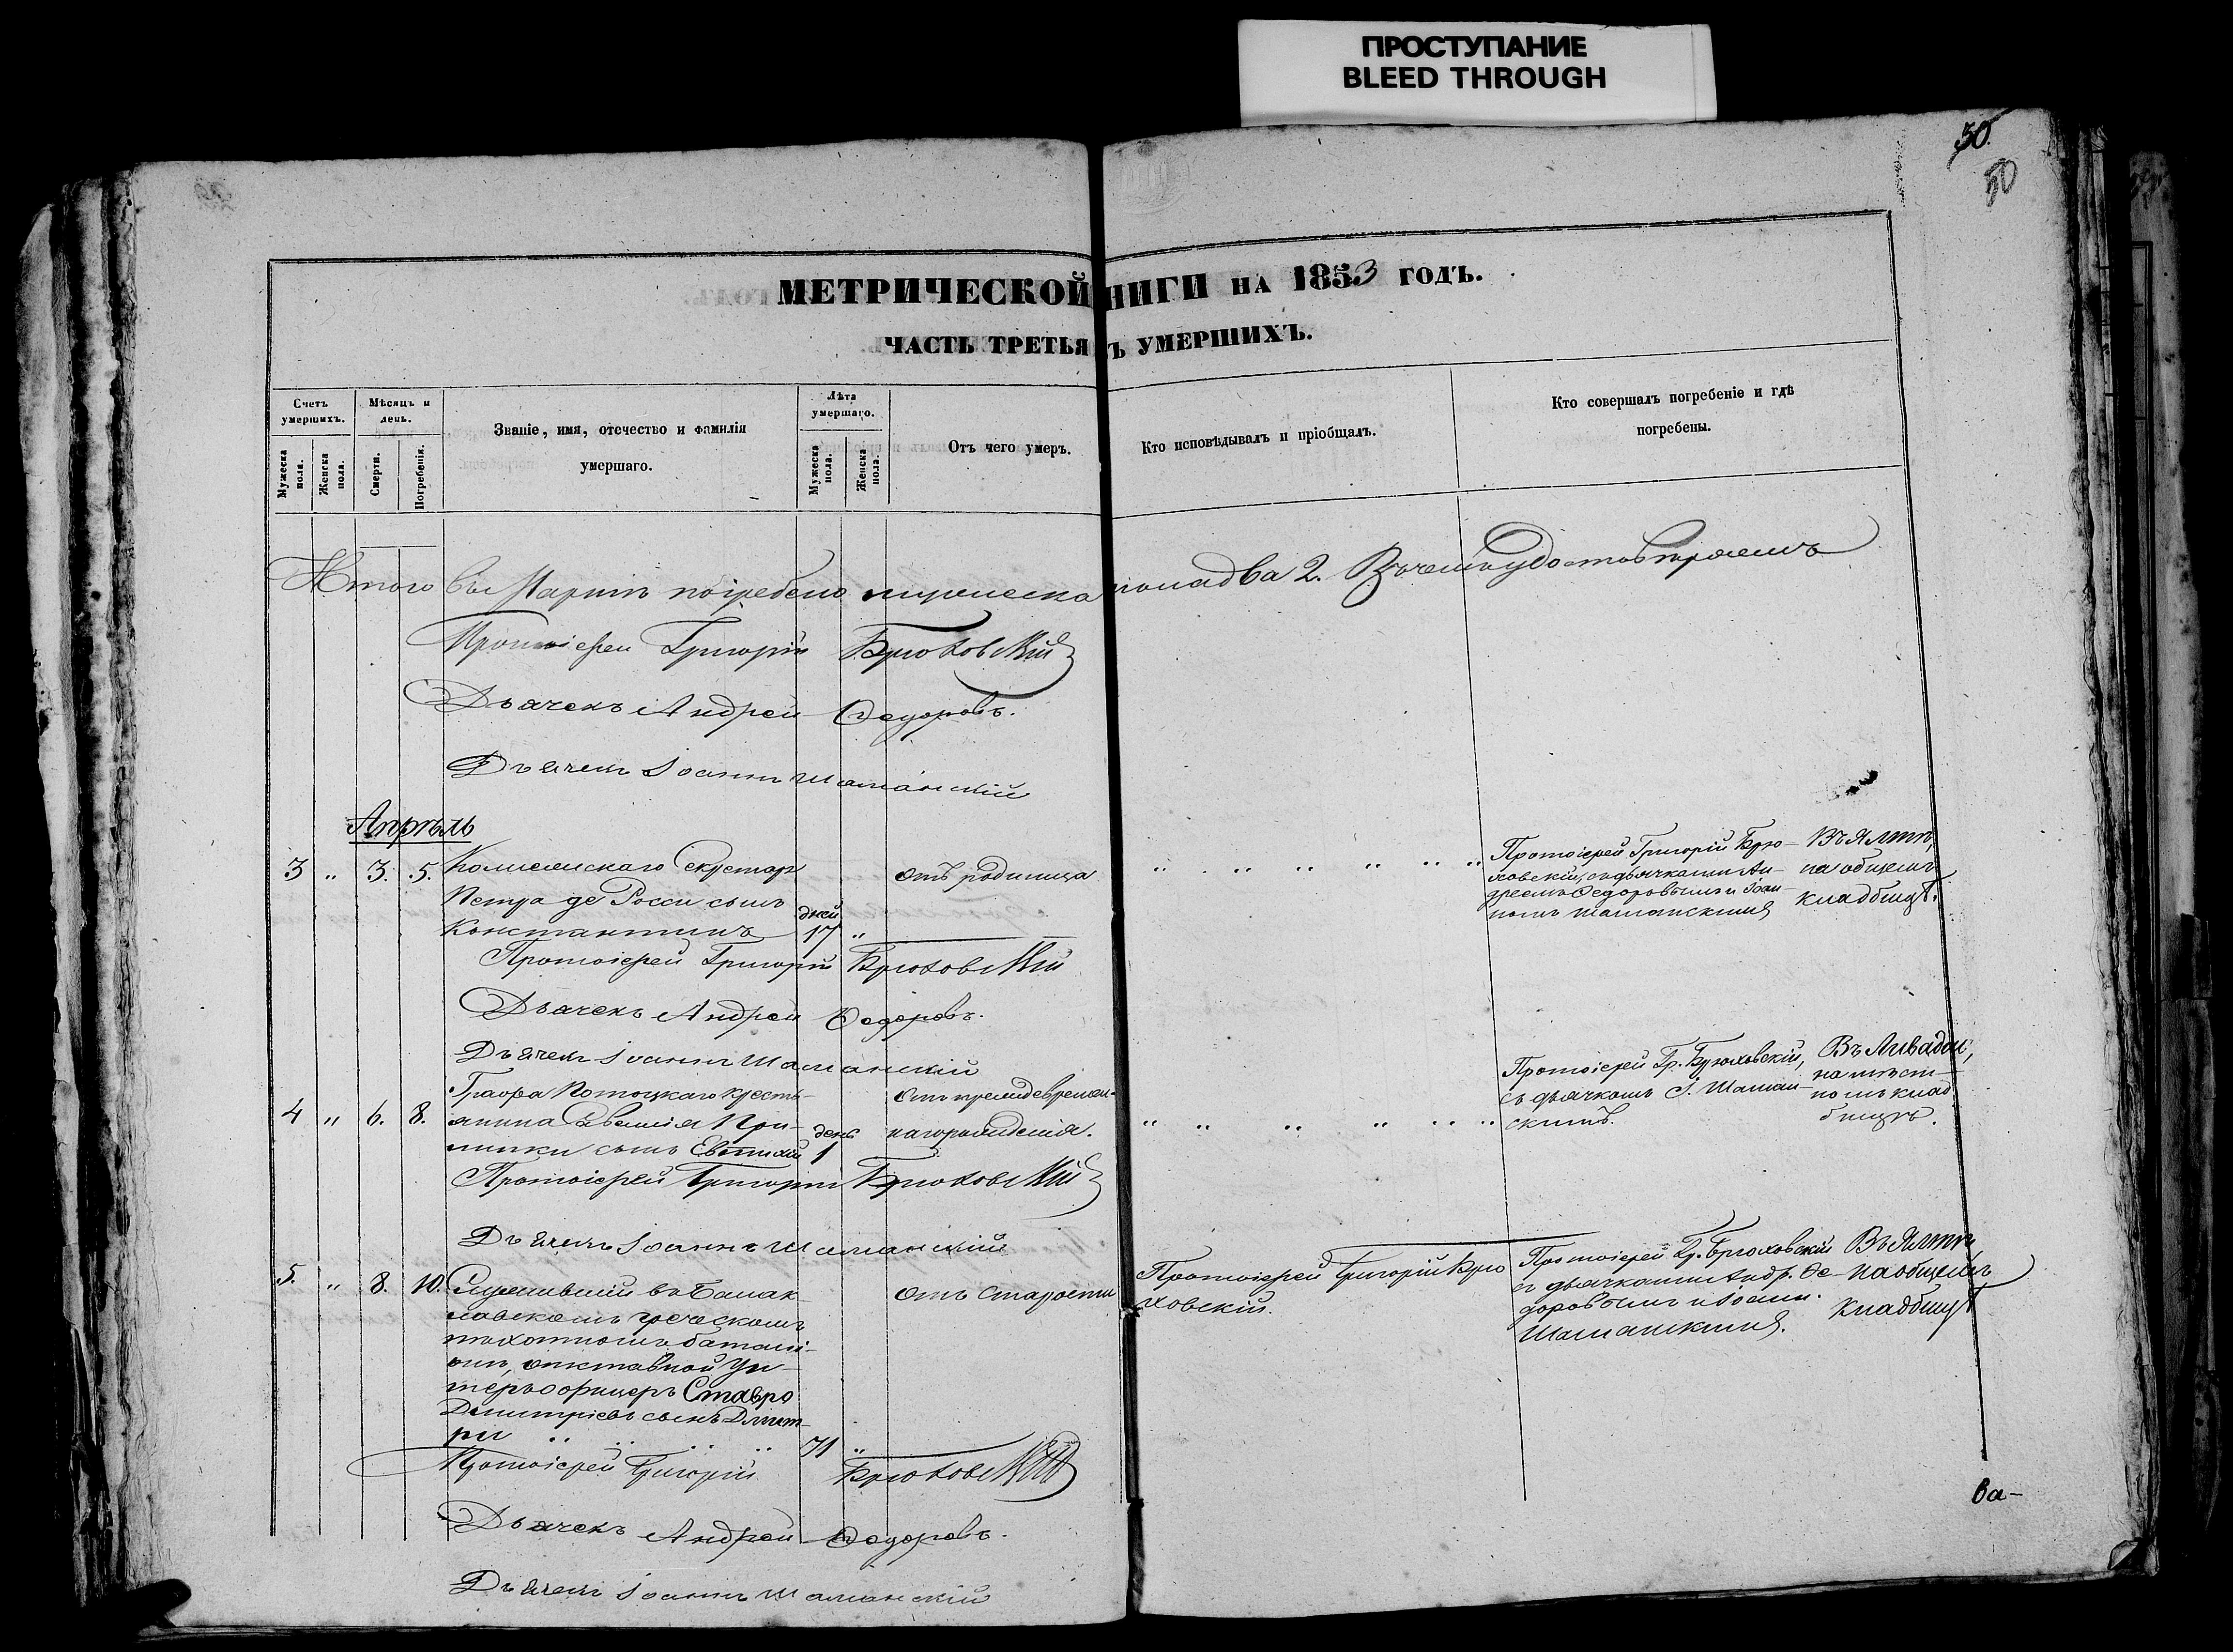 ПРОСТУПАНИЕ
BLEED THROUGH
30.
50
МЕТРИЧЕСКОЙ НИГИ НА 1853 ГОДЪ.
ЧАСТЬ ТРЕТЬЯ Ъ УМЕРШИХЪ.
Счетъ умершихъ.
Мужеска пола.
Женска пола.
Мѣсяцъ и день.
Смерти.
Погребенія.
Званіе, имя, отечество и фамилія
умершаго.
Лѣта умершаго.
Мужеска пола.
Женска пола.
Отъ чего умеръ.
Кто исповѣдывалъ и пріобщалъ.
Кто совершалъ погребеніе и гдѣ
погребены.
Итого въ Мартѣ погребено мужеска пола два 2. Въ чемъ удостовѣряемъ
Протоіерей Григорій Брюховскій
Дьячекъ Андрей Ѳедоровъ.
Дьячекъ Іоаннъ Шаманскій
Апрѣль
3 " 3. 5. Колиежскаго Секретаря
Петра де Росси сынъ
Константинъ
дней
17 "
отъ родимца
" " " " " "
Протоіерей Григорій Брю-
ховскій, съ дьячками Ан-
дреемъ Ѳедоровымъ и Іоан-
номъ Шаманскимъ
Въ Ялтѣ,
на общемъ
кладбищѣ.
Протоіерей Григорій Брюховскій
Дьячекъ Андрей Ѳедоровъ.
Дьячекъ Іоаннъ Шаманскій
4 " 6. 8. Графа Потоцкаго кресть-
янина
сынъ Евтихій
день
1
отъ преждевремен-
наго рожденія.
" " " " " "
Протоіерей Гр. Брюховскій,
съ дьячкомъ І. Шаман-
скимъ.
Въ Ливадіи,
на мѣст-
номъ клад-
бищѣ.
Протоіерей Григорій Брюховскій
Дьячекъ Іоаннъ Шаманскій
5. " 8. 10. Служившій въ Балак-
лавскомъ греческомъ
пѣхотномъ баталі-
онѣ, отставной Ун-
теръ офицеръ Ставро
Димитріевъ сынъ Дмит-
ри " " " "
71 "
отъ старости
Протоіерей Григорій Брю
ховскій.
Протоіерей Гр. Брюховскій
съ дьячками Андр. Ѳе-
доровымъ и Іоанн.
Шаманскимъ.
Въ Ялтѣ
на общемъ
кладбищѣ
Протоіерей Григорій Брюховскій
Дьячекъ Андрей Ѳедоровъ.
Дьячекъ Іоаннъ Шаманскій
ва-